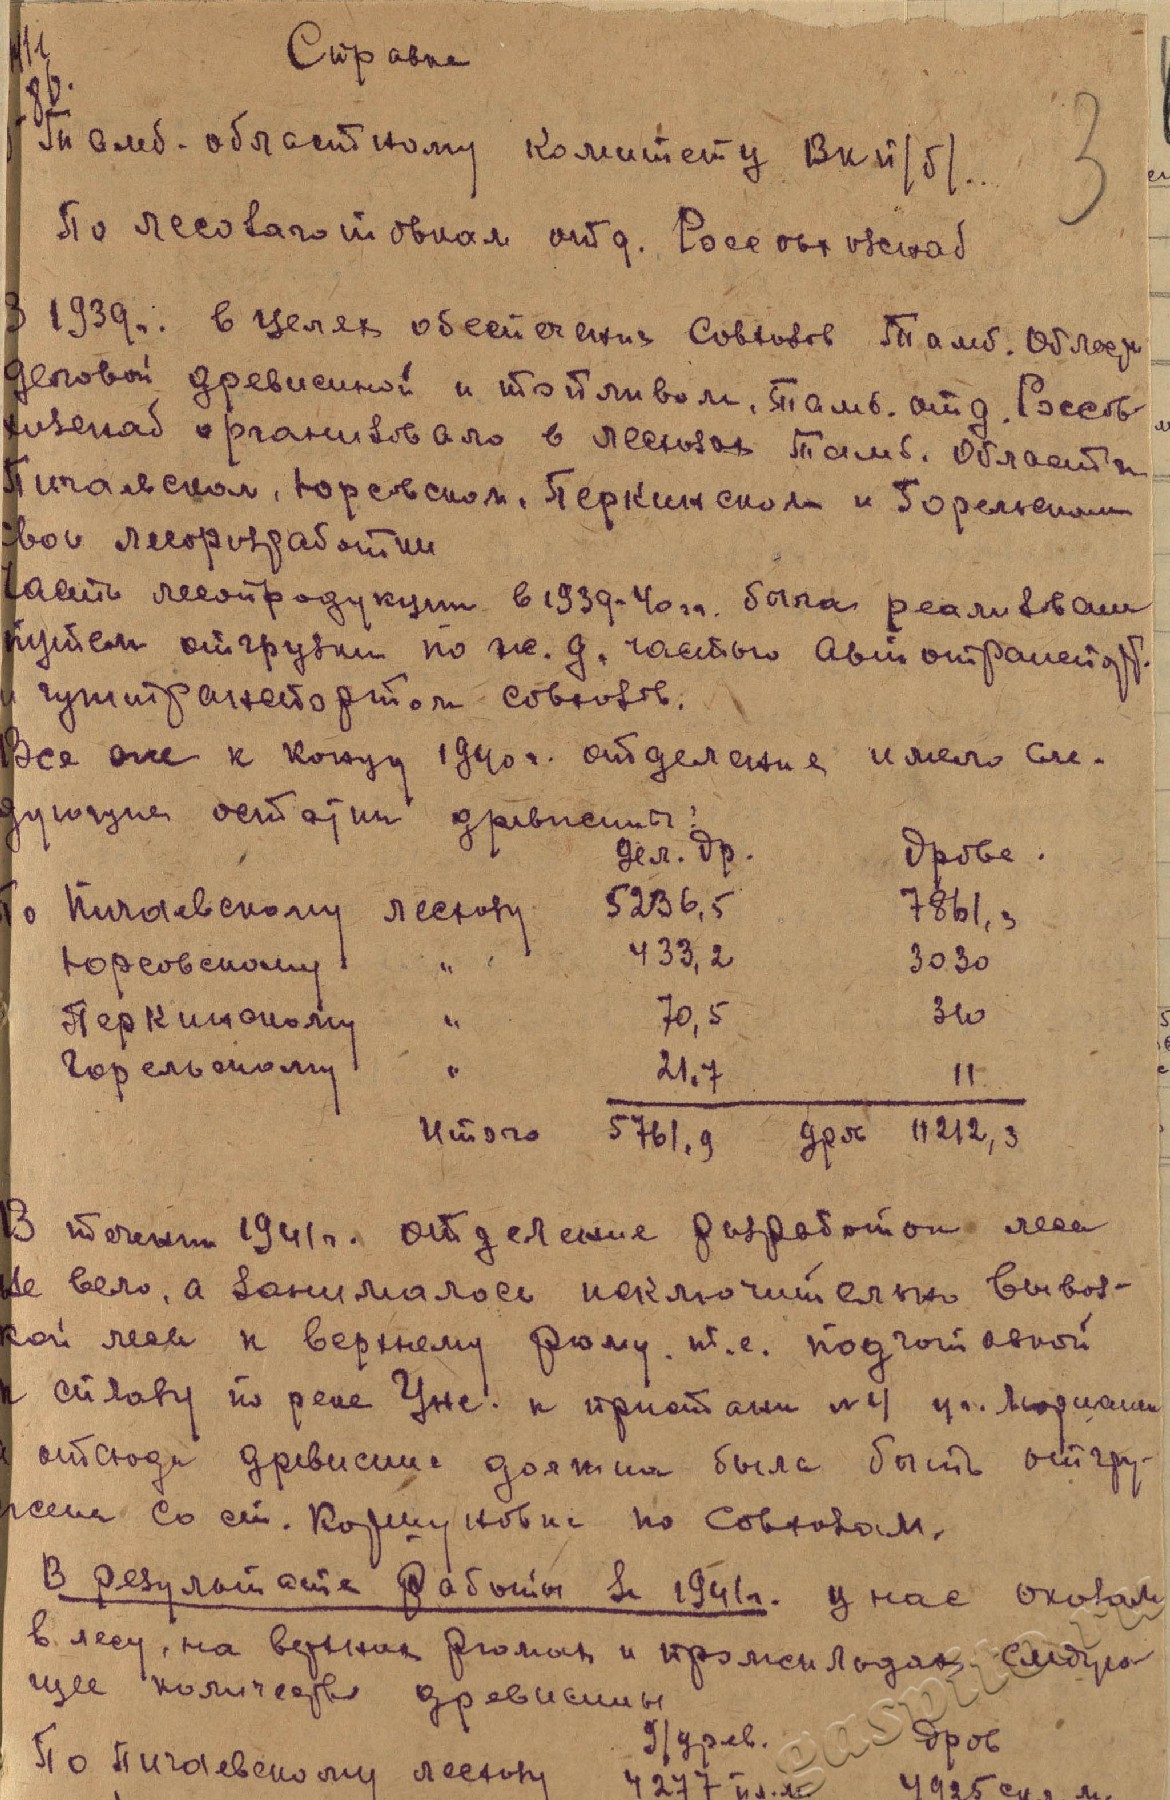 Справка
Тамб. областному комитету ВКП/б/..
По лесозаготовкам отд. Россовхозснаб
3
В 1939г. в целях обеспечения совхозов Тамб. Област
деловой древисиной и топливом, Тамб. отд. Россов-
хозснаб организовало в лесхозах Тамб. Области
Пичаевском, Юрсовском, Перкинском и Горельском
свои лесоразработки
Часть лесопродукции в 1939-40 гг. была реализован
путем отгрузки по ж.д. частью автотранспорт.
и гужтранспортом совхозов.
Все же к концу 1940г. отделение имело сле-
дующие остатки древисины:
дел. др. Дрова.
По Пичаевскому лесхозу 5236,5 7861,3
Юрсовскому " 433,2 3030
Перкинскому " 70,5 310
Горельскому " 21,7 11
Итого 5761,9 дров 11212,3
В течении 1941г. отделение разработок леса
не вело, а занималось исключительно вывоз-
кой леса к верхнему рюму. т.е. подготовкой
к сплаву по реке Цне. к пристани №4
и отсюда древисина должна была быть отгру-
жена со ст. Коршуновка по совхозам.
В результате работы за 1941г. у нас оказал
в лесу, на верхних рюмах и промскладах следую
щее количество древисины
д/древ. Дров
По Пичаевскому лесхозу 4277 пл.м. 4925 скл.м.
gaspito.ru